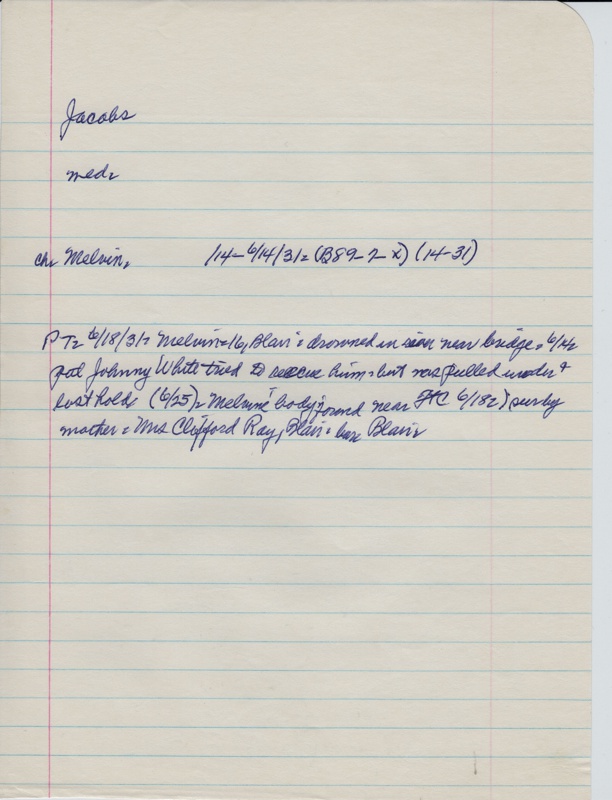 Jacobs
med.
ch. Melvin. /14 - 6/14/31 = (B89-2-x) (14-31)
PT = 6/18/31 = Melvin = 16, Blair = drowned in river near bridge = 6/14 =
pal Johnny White tried to rescue him = but was pulled under +
lost hold = (6/25) = Melvins' body found near FtC 6/18 = surv by
mother = Mrs Clifford Ray, Blair = bur Blair =